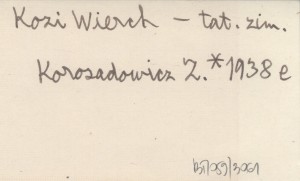 Kozi Wierch – tat. zim.
Korosadowicz Z. * 1938 e